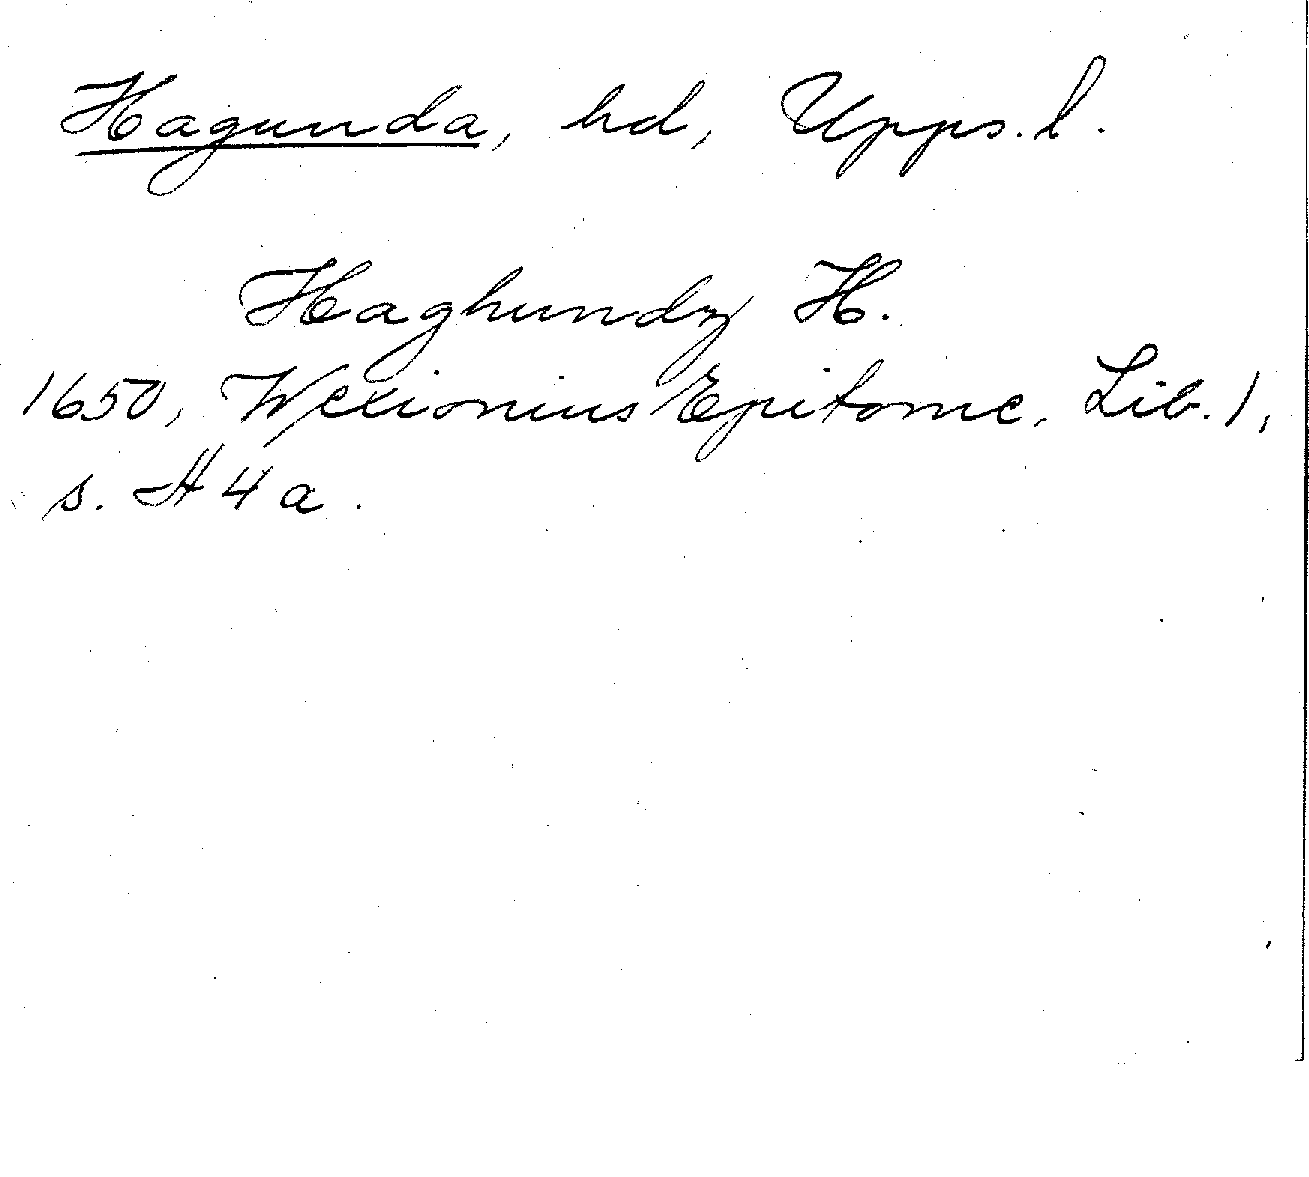 Hagunda, hd, Upps. l.
Haghundz H.
1650, Wexionius Epitome, Lib. 1,
s. H 4 a.